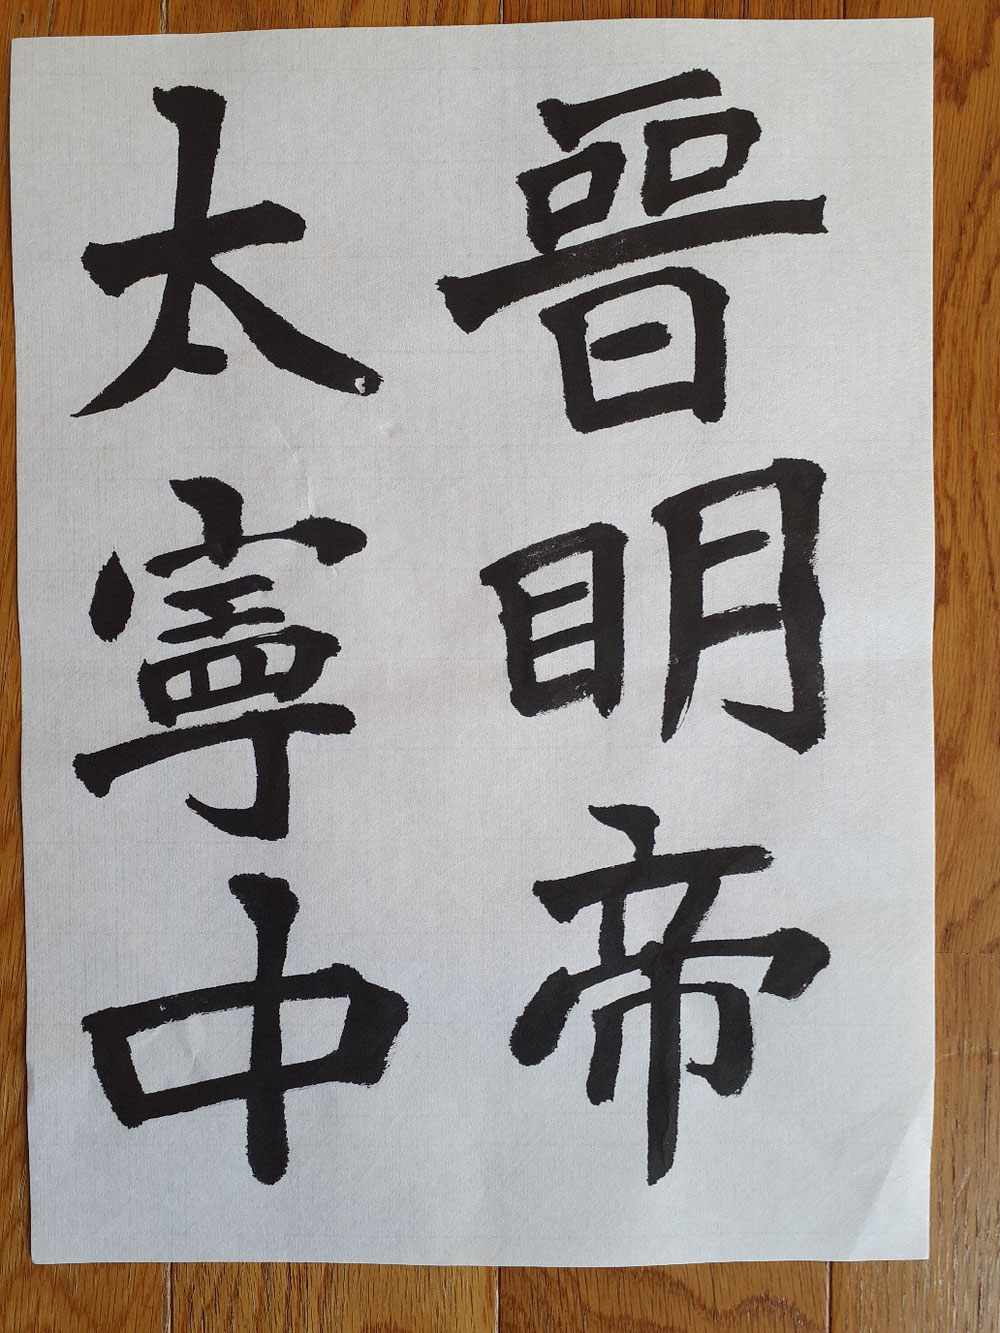 晉明帝
太寧中